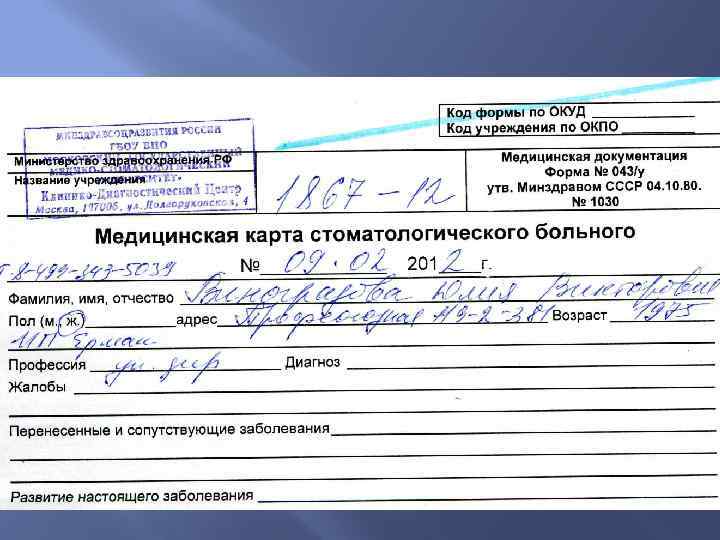 Код формы по ОКУД
Код учреждения по ОКПО
МИНЗДРАВСОЦРАЗВИТИЯ РОССИИ
ГБОУ ВПО
Министерство здравоохранения РФ
Название учреждения
Клинико-Диагностический Центр
Москва, ул. Долгоруковская, 4
1867-12
Медицинская документация
Форма № 043/у
утв. Минздравом СССР 04.10.80.
№ 1030
Медицинская карта стоматологического больного
т. 8-499-343-5039
№ 09.02 2012 г.
Фамилия, имя, отчество Виноградова Юлия Викторовна
Пол (м., ж.) адрес Профсоюзная Возраст 1975
ИП Ерман
Профессия Диагноз
Жалобы
Перенесенные и сопутствующие заболевания
Развитие настоящего заболевания